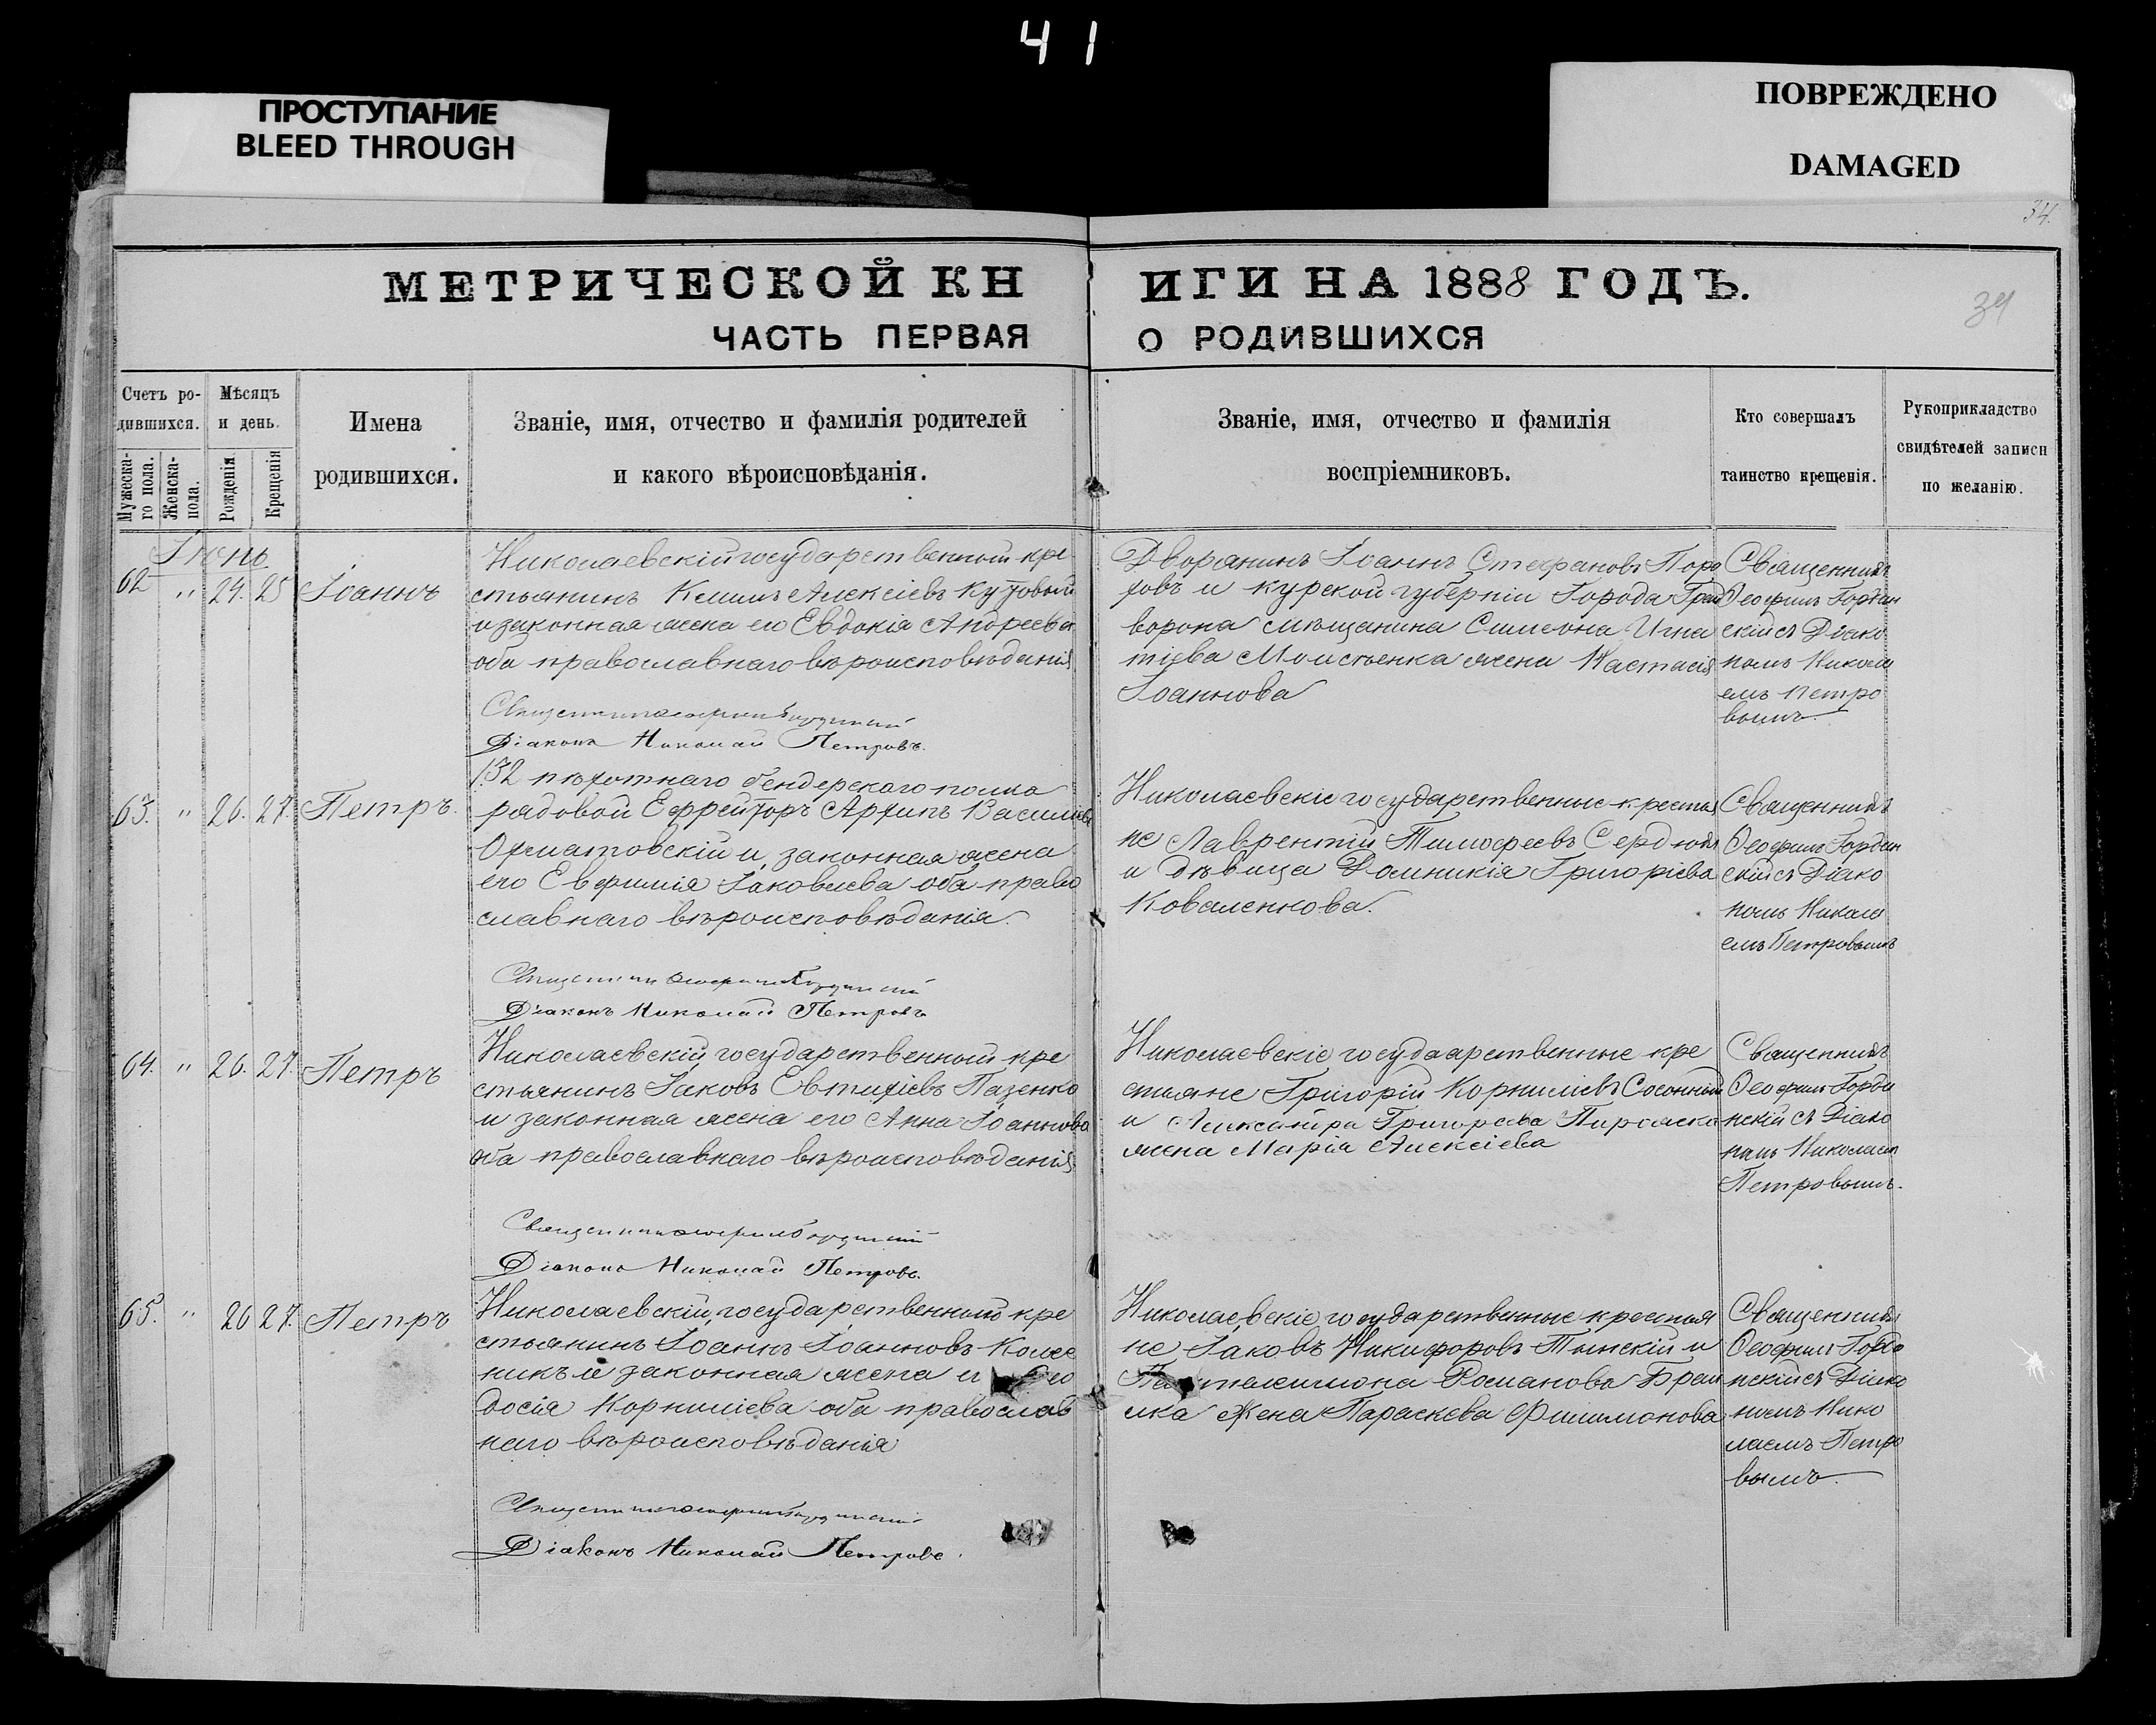 41
ПРОСТУПАНИЕ
BLEED THROUGH
ПОВРЕЖДЕНО
DAMAGED
34.
МЕТРИЧЕСКОЙ КНИГИ НА 1888 ГОДЪ.
34
ЧАСТЬ ПЕРВАЯ О РОДИВШИХСЯ
Счетъ ро-
дившихся.
Мужеска-
го пола.
Женска-
пола.
Мѣсяцъ
и день.
Рожденія
Крещенія
Имена
родившихся.
Званіе, имя, отчество и фамилія родителей
и какого вѣроисповѣданія.
Званіе, имя, отчество и фамилія
воспріемниковъ.
Кто совершалъ
таинство крещенія.
Рукоприкладство
свидѣтелей записи
по желанію.
Іюнь
62 " 24. 25 Іоаннъ
Николаевскій государственный кре
стьянинъ Климъ Алексіевъ Кутовый
и законная жена его Евдокія Андреева
оба православнаго вѣроисповѣданія
Священникъ Ѳеофилъ Гординскій
Діаконъ Николай Петровъ.
Дворянинъ Іоаннъ Стефановъ Поро
ховъ и Курской губерніи Города Грай
ворона мѣщанина Симеона Игна
тіева Моисѣенка жена Настасія
Іоаннова
Священникъ
Ѳеофилъ Гордин
скій съ Діако
номъ Никола
емъ Петро
вымъ.
63. " 26. 27. Петръ.
132 пѣхотнаго бендерскаго полка
рядовой Ефрейторъ Архипъ Василіевъ
Охматовскій и законная жена
его Евфимія Іаковлева оба право
славнаго вѣроисповѣданія.
Священникъ Ѳеофилъ Гординскій
Діаконъ Николай Петровъ
Николаевскіе государственные крестья
не Лаврентій Тимофеевъ Сердюкъ
и дѣвица Домникія Григоріева
Коваленкова.
Священникъ
Ѳеофилъ Гордин
скій съ Діако
номъ Никола
емъ Петровымъ
64. " 26. 27. Петръ
Николаевскій государственный кре
стьянинъ Іаковъ Евтихіевъ Пазенко
и законная жена его Анна Іоаннова
оба православнаго вѣроисповѣданія
Священникъ Ѳеофилъ Гординскій
Діаконъ Николай Петровъ.
Николаевскіе государственные кре
стьяне Григорій Корниліевъ Сосонный
и Григорьева
жена Марія Алексіева
Священникъ
Ѳеофилъ Горди
нскій съ Діако
номъ Николаем
Петровымъ.
65. " 26 27. Петръ
Николаевскій государственный кре
стьянинъ Іоаннъ Іоанновъ Колес
никъ и законная жена его Ѳео
досія Корниліева оба православ
наго вѣроисповѣданія
Священникъ Ѳеофилъ Гординскій
Діаконъ Николай Петровъ.
Николаевскіе государственные крестья
не Іаковъ Никифоровъ Тынскій и
Пантелеимона Романова
жена Параскева Филимонова
Священникъ
Ѳеофилъ Горди
нскій съ Діако
номъ Нико
лаемъ Петро
вымъ.